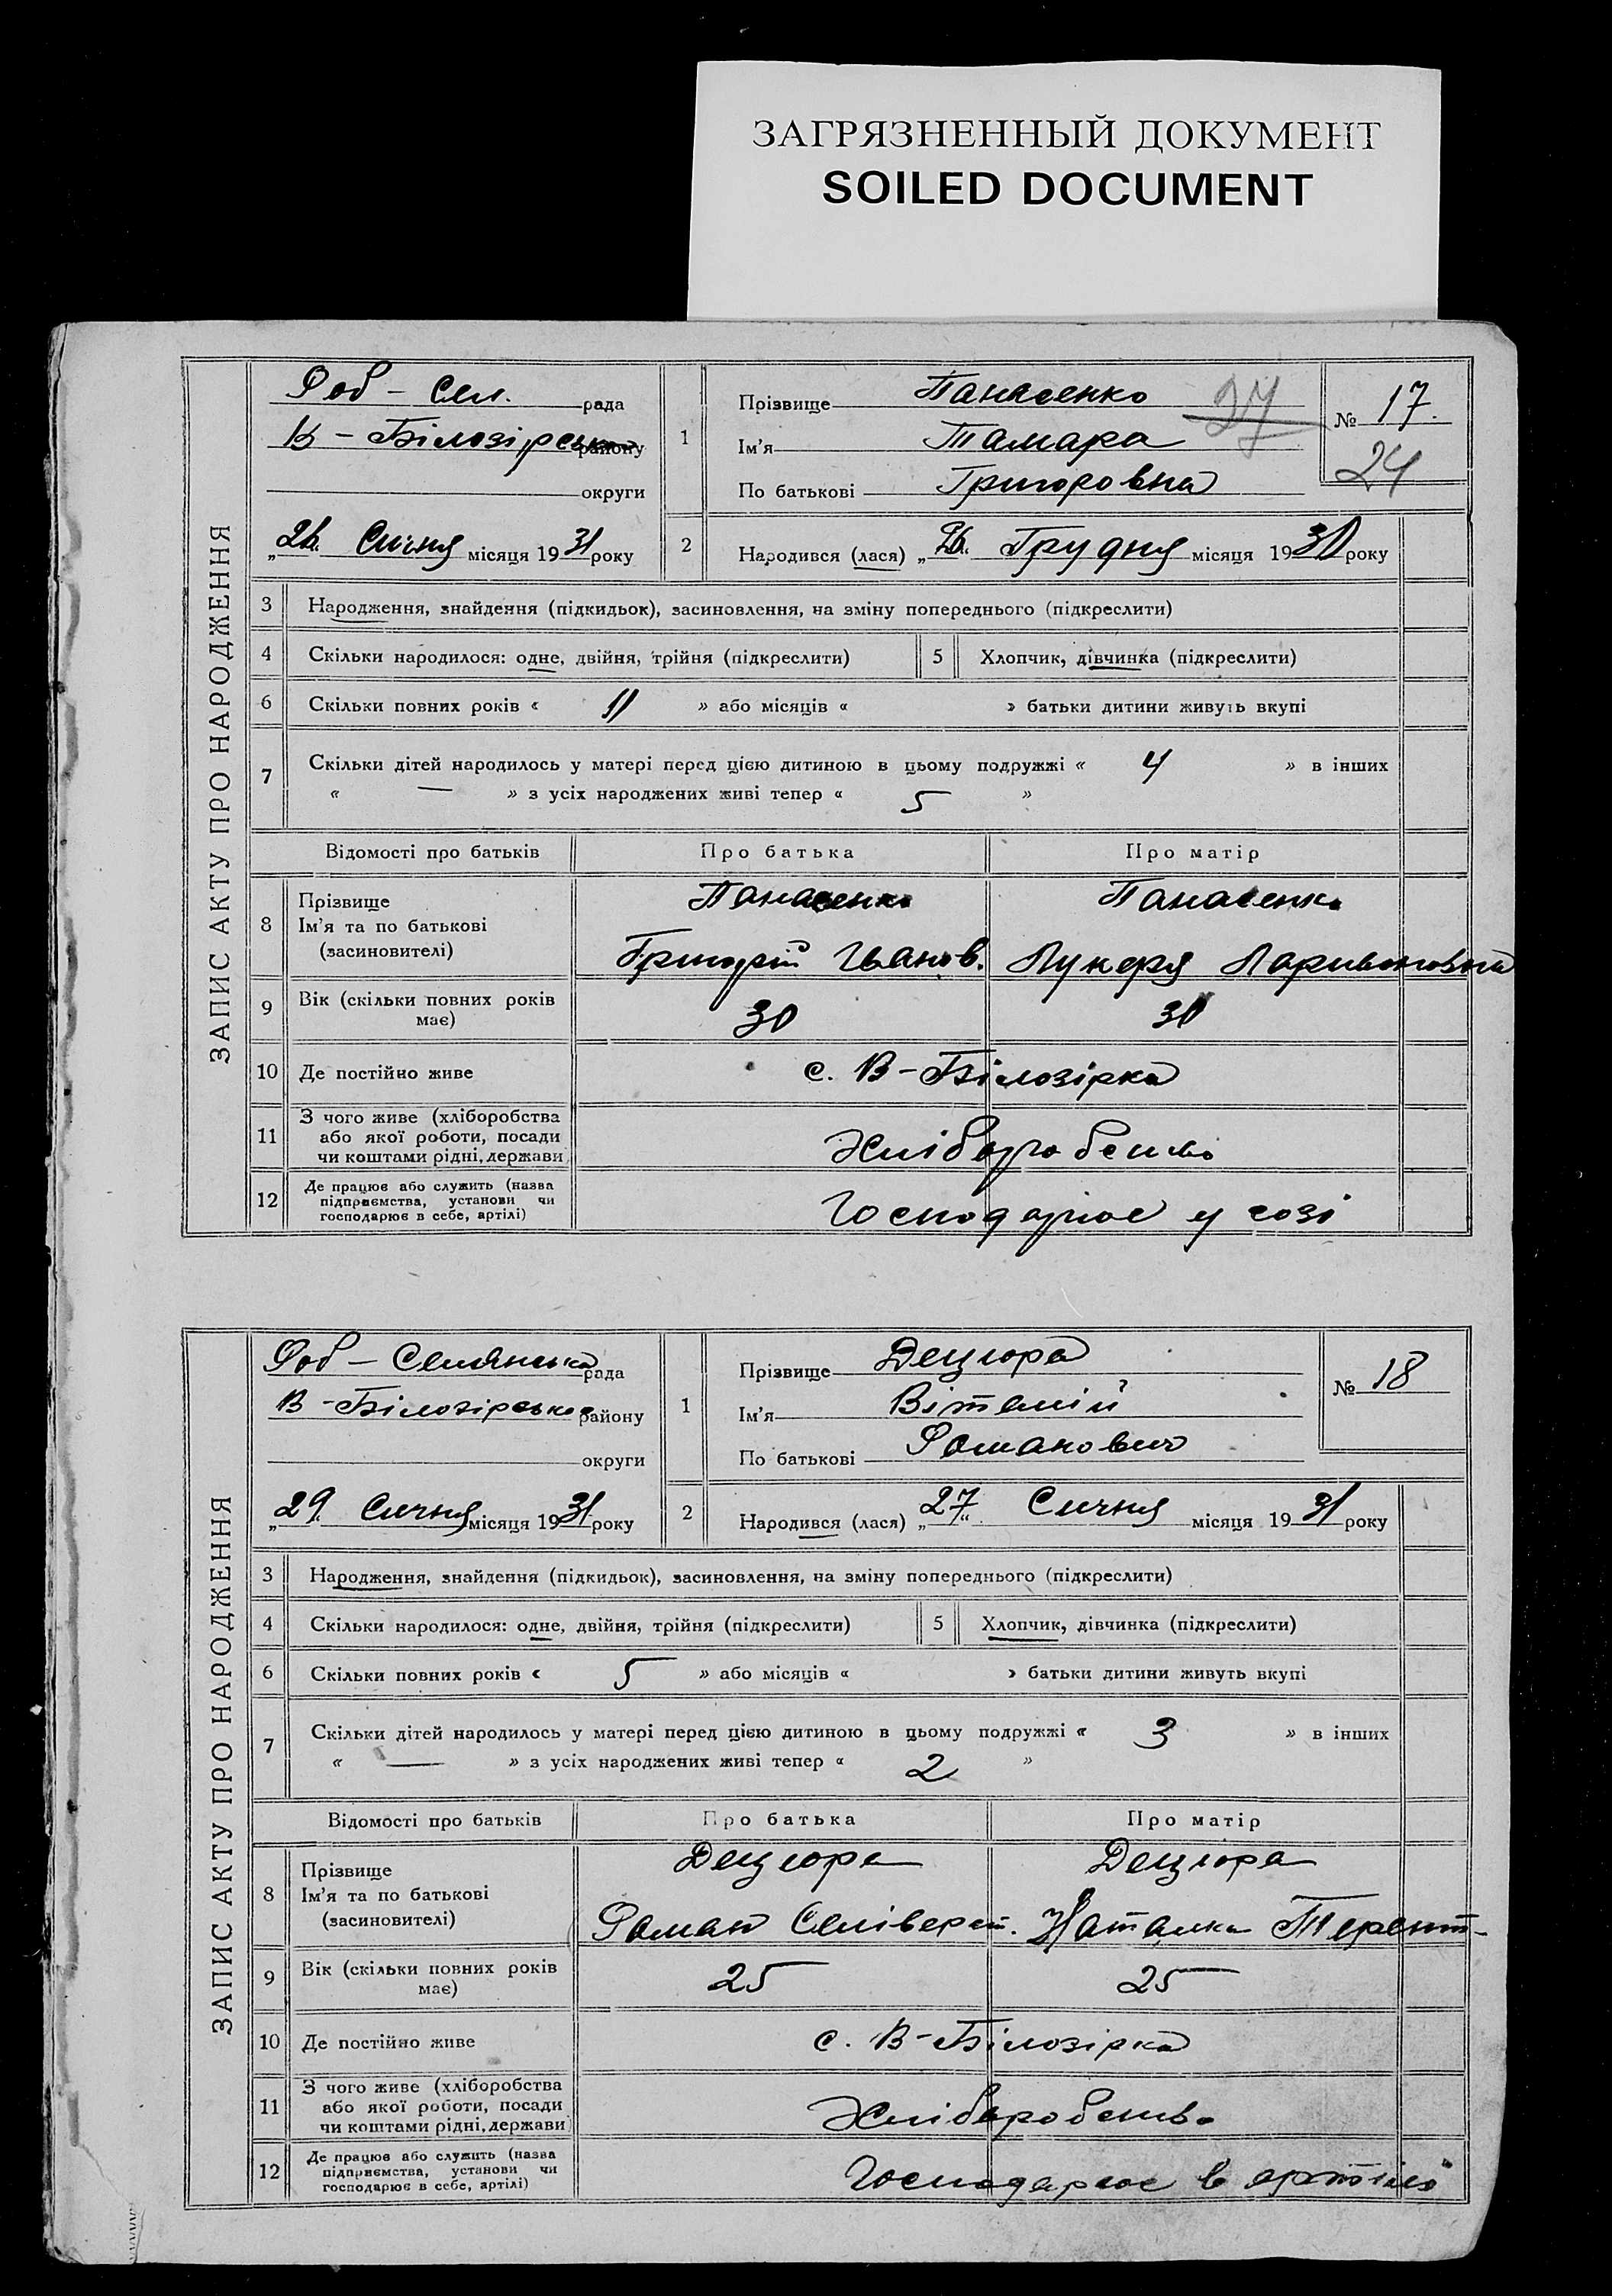 ЗАГРЯЗНЕННЫЙ ДОКУМЕНТ
SOILED DOCUMENT
ЗАПИС АКТУ ПРО НАРОДЖЕННЯ
Роб – Сел. рада
В – Білозірська району
округи
„26“ Січня місяця 1931 року
1
Прізвище Панасенко
Ім'я Тамара
По батькові Григоровна
27
№ 17.
24
2
Народився (лася) „26“ Грудня місяця 1930 року
3 Народження, знайдення (підкидьок), засиновлення, на зміну попереднього (підкреслити)
4 Скільки народилося: одне, двійня, трійня (підкреслити) 5 Хлопчик, дівчинка (підкреслити)
6 Скільки повних років « 11 » або місяців « » батьки дитини живуть вкупі
7 Скільки дітей народилось у матері перед цією дитиною в цьому подружжі « 4 » в інших
« — » з усіх народжених живі тепер « 5 »
Відомості про батьків Про батька Про матір
8 Прізвище Ім'я та по батькові (засиновителі)
Панасенко Панасенко
Григорій Іванов. Лукеря Ларивоновна
9 Вік (скільки повних років має) 30 30
10 Де постійно живе с. В – Білозірка
11 З чого живе (хліборобства або якої роботи, посади чи коштами рідні, держави
Хліборобство
12 Де працює або служить (назва підприємства, установи чи господарює в себе, артілі)
Господарює у созі
ЗАПИС АКТУ ПРО НАРОДЖЕННЯ
Роб – Селянська рада
В – Білозірською району
округи
„29“ Сичня місяця 1931 року
1
Прізвище Децюра
Ім'я Віталій
По батькові Романович
№ 18
2
Народився (лася) „27“ Сичня місяця 1931 року
3 Народження, знайдення (підкидьок), засиновлення, на зміну попереднього (підкреслити)
4 Скільки народилося: одне, двійня, трійня (підкреслити) 5 Хлопчик, дівчинка (підкреслити)
6 Скільки повних років « 5 » або місяців « » батьки дитини живуть вкупі
7 Скільки дітей народилось у матері перед цією дитиною в цьому подружжі « 3 » в інших
« — » з усіх народжених живі тепер « 2 »
Відомості про батьків Про батька Про матір
8 Прізвище Ім'я та по батькові (засиновителі)
Децюра Децюра
Роман Селіверст. Наталка Терент-
9 Вік (скільки повних років має) 25 25
10 Де постійно живе с. В – Білозірка
11 З чого живе (хліборобства або якої роботи, посади чи коштами рідні, держави
Хліборобство
12 Де працює або служить (назва підприємства, установи чи господарює в себе, артілі)
Господарює в артілі